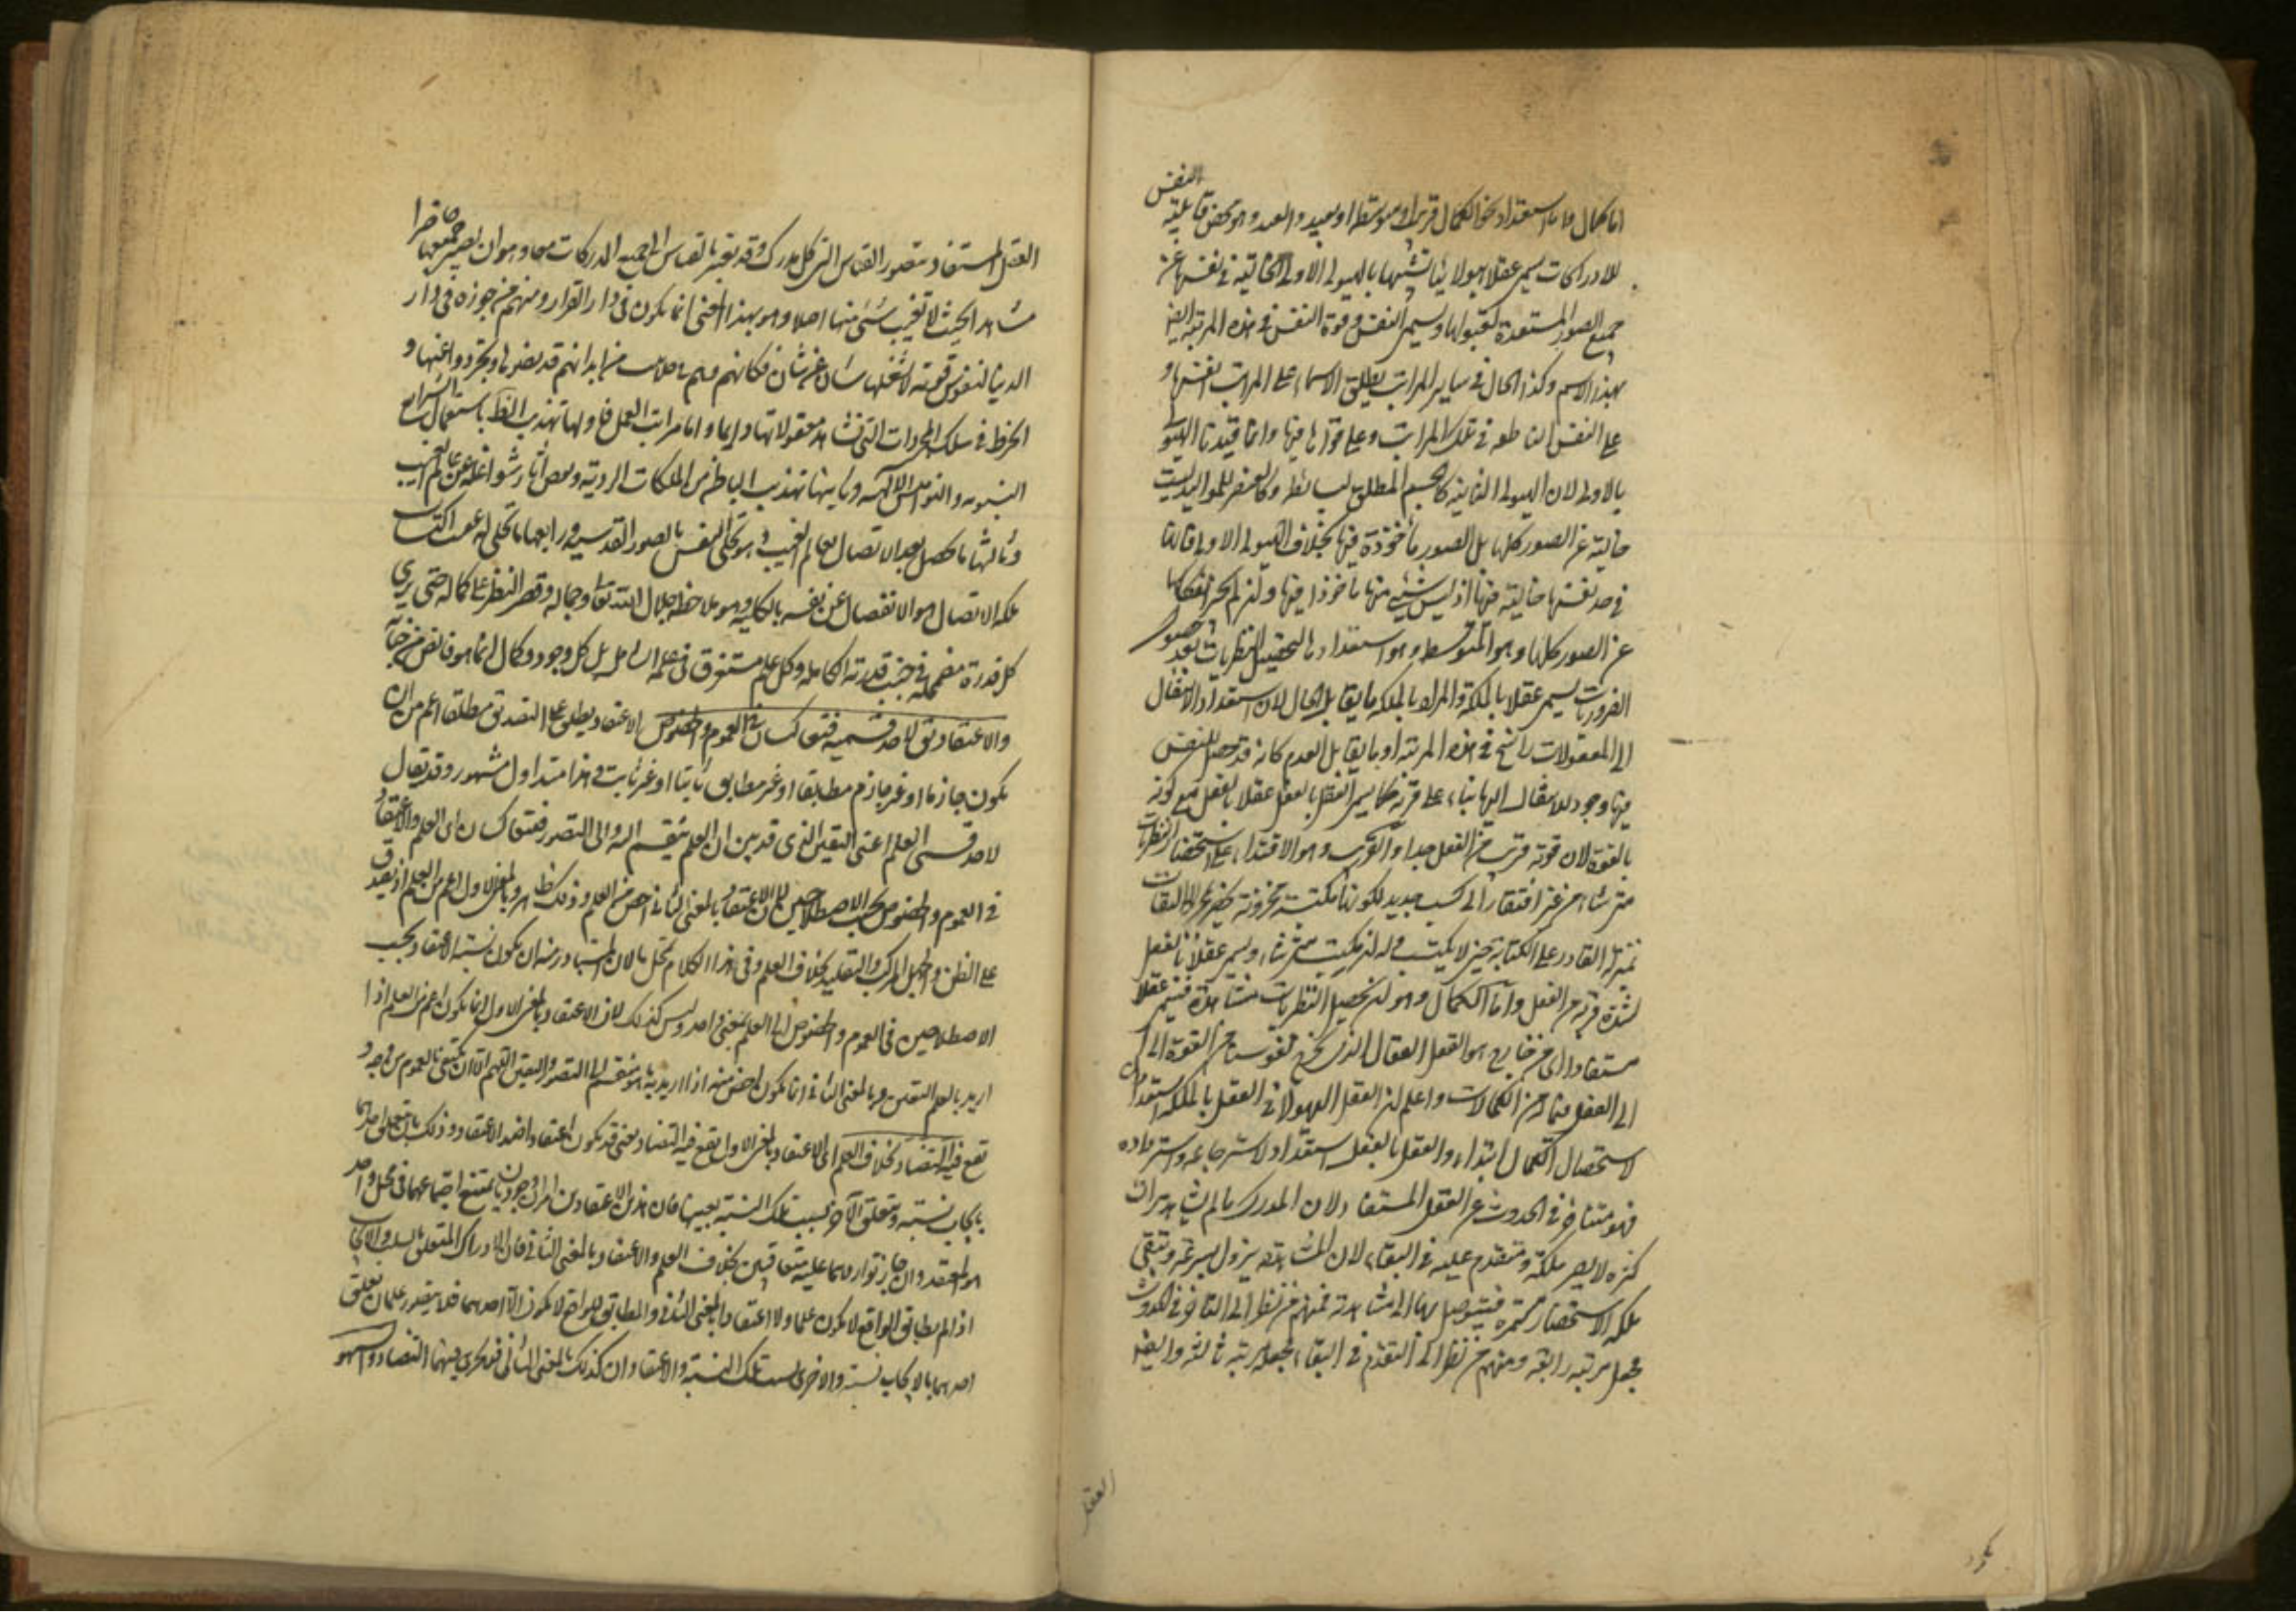 النفس
اما كمال واما استعداد نحو الكمال قريب او متوسط او بعيد والبعيد وهو محض قابلية
للادراكات يسمى عقلا هيولانيا تشبيها بالهيولى الاولى الخالية في نفسها عن
جميع الصور المستعدة لقبولها ويسمى النفس وقوة النفس في هذه المرتبة ايضا
بهذا الاسم وكذا الحال في ساير المراتب يطلق الاسماء على المراتب انفسها و
على النفس الناطقة في تلك المراتب وعلى قواها فيها وانما قيدنا الهيولى
بالاولى لان الهيولى الثانية كالجسم المطلق لبسائطه وكالعنصر للمواليد ليست
خالية عن الصور كلها بل الصور مأخوذة فيها بخلاف الهيولى الاولى فانها
في حد نفسها خالية عنها اذ ليس شيئ منها مأخوذا فيها وان لم يجز انفكاكها
عن الصور كلها وهو المتوسط وهو استعدادها لتحصيل النظريات بعد حصول
الضروريات يسمى عقلا بالملكة والمراد بالملكة ما يقابل الحال لان استعداد الانتقال
الى المعقولات راسخ في هذه المرتبة او ما يقابل العدم كانه قد حصل للنفس
فيها وجود الانتقال اليها بناء على قربه كما يسمى العقل بالفعل عقلا بالفعل مع كونه
بالقوة لان قوته قريب من الفعل جدا والقريب وهو الاقتدار على استحضار النظريات
متى شاء من غير افتقار الى كسب جديد لكونها مكتسبة مخزونة تحضر بمجرد الالتفات
بمنزلة القادر على الكتابة حين لا يكتب وله ان يكتب متى شاء ويسمى عقلا بالفعل
لشدة قربه من الفعل واما الكمال وهو ان يحصل النظريات مشاهدة فيسمى عقلا
مستفادا اى من خارج هو العقل الفعال الذى يخرج نفوسنا من القوة الى
الى الفعل فيما له من الكمالات واعلم ان العقل الهيولاني والعقل بالملكة استعدادان
لاستحصال الكمال ابتداء والعقل بالفعل استعداد لاسترجاعه واسترداده
فهو متأخر في الحدوث عن العقل المستفاد لان المدرك ما لم يشاهد مرات
كثيرة لا يصير ملكة ومتقدم عليه في البقاء لان المشاهدة يزول بسرعة وتبقى
ملكة الاستحضار مستمرة فيتوصل بها الى مشاهدته فمنهم من نظر الى التأخر في الحدوث
فجعل مرتبة رابعة ومنهم من نظر الى التقدم في البقاء فجعله مرتبة ثالثة وايضا
العقل
العقل المستفاد يتصور بالقياس الى كل مدرك وقد يعتبر بالقياس الى جميع المدركات معا وهو ان يصير جميعها حاضرا
مشاهدا بحيث لا تغيب شئ منها اصلا وهو بهذا المعنى انما يكون في دار القرار ومنهم من جوزه في دار
الدنيا لنفوس قوية لا يشغلها شان عن شان فكانهم وهم في جلابيب من ابدانهم قد نضوها وتجردوا عنها و
انخرطوا في سلك المجردات التي تشاهد معقولاتها دايما واما مراتب العمل فاولها تهذيب الظاهر باستعمال الشرايع
النبوية والنواميس الالهية وثانيها تهذيب الباطن من الملكات الردية ونفض آثار شواغله عن عالم الغيب
وثالثها ما يحصل بعد الاتصال بعالم الغيب وهو تحلى النفس بالصور القدسية ورابعها ما تجلى له عقيب اكتساب
ملكة الاتصال والانفصال عن نفسه بالكلية وهو ملاحظة جلال الله تعالى وجماله وقصر النظر على كماله حتى يرى
كل قدرة مضمحلة في جنب قدرته الكاملة وكل علم مستغرق في علمه الشامل بل كل وجود وكمال انما هو فائض من جنابه
والاعتقاد يقال لاحد قسميه فيتعاكسان في العموم والخصوص الاعتقاد يطلق على التصديق مطلقا اعم من ان
يكون جازما او غير جازم مطابقا او غير مطابق ثابتا او غير ثابت وهذا متداول مشهور وقد يقال
لاحد قسمى العلم اعنى اليقين الذى قد بين ان العلم ينقسم اليه والى التصور فيتعاكسان اى العلم والاعتقاد
في العموم والخصوص بحسب الاصطلاحين لان الاعتقاد بالمعنى الثانى اخص من العلم وذلك ظاهر وبالمعنى الاول اعم من العلم اذ يصدق
على الظن والجهل المركب والتقليد بخلاف العلم وفى هذا الكلام تأمل لان المتبادر منه ان يكون نسبة الاعتقاد بحسب
الاصطلاحين في العموم والخصوص الى العلم بمعنى واحد وليس كذلك لان الاعتقاد بالمعنى الاول انما يكون اعم من العلم اذا
اريد بالعلم اليقين وبالمعنى الثانى انما يكون اخص منه اذا اريد به ما ينقسم الى التصور واليقين اللهم الا ان يكتفى بالعموم من وجه و
يقع فيه التضاد بخلاف العلم اى الاعتقاد بالمعنى الاول يقع فيه التضاد يعنى قد يكون اعتقاد ضد الاعتقاد وذلك بان يتعلق احدهما
بايجاب نسبة ويتعلق الآخر بسلب تلك النسبة بعينها فان هذين الاعتقادين امران وجوديان يمتنع اجتماعهما في محل واحد
هو المعتقد وان جاز تواردهما عليه متعاقبين بخلاف العلم والاعتقاد بالمعنى الثانى فان الادراك المتعلق بالسلب والايجاب
اذا لم يطابق الواقع لا يكون علما ولا اعتقادا بالمعنى الثانى والمطابق للواقع لا يكون الا احدهما فلا يتصور علمان يتعلق
احدهما بالايجاب نسبة والاخرى بسلب تلك النسبة والاعتقادان كذلك بالمعنى الثانى فيجرى بينهما التضاد والسهو